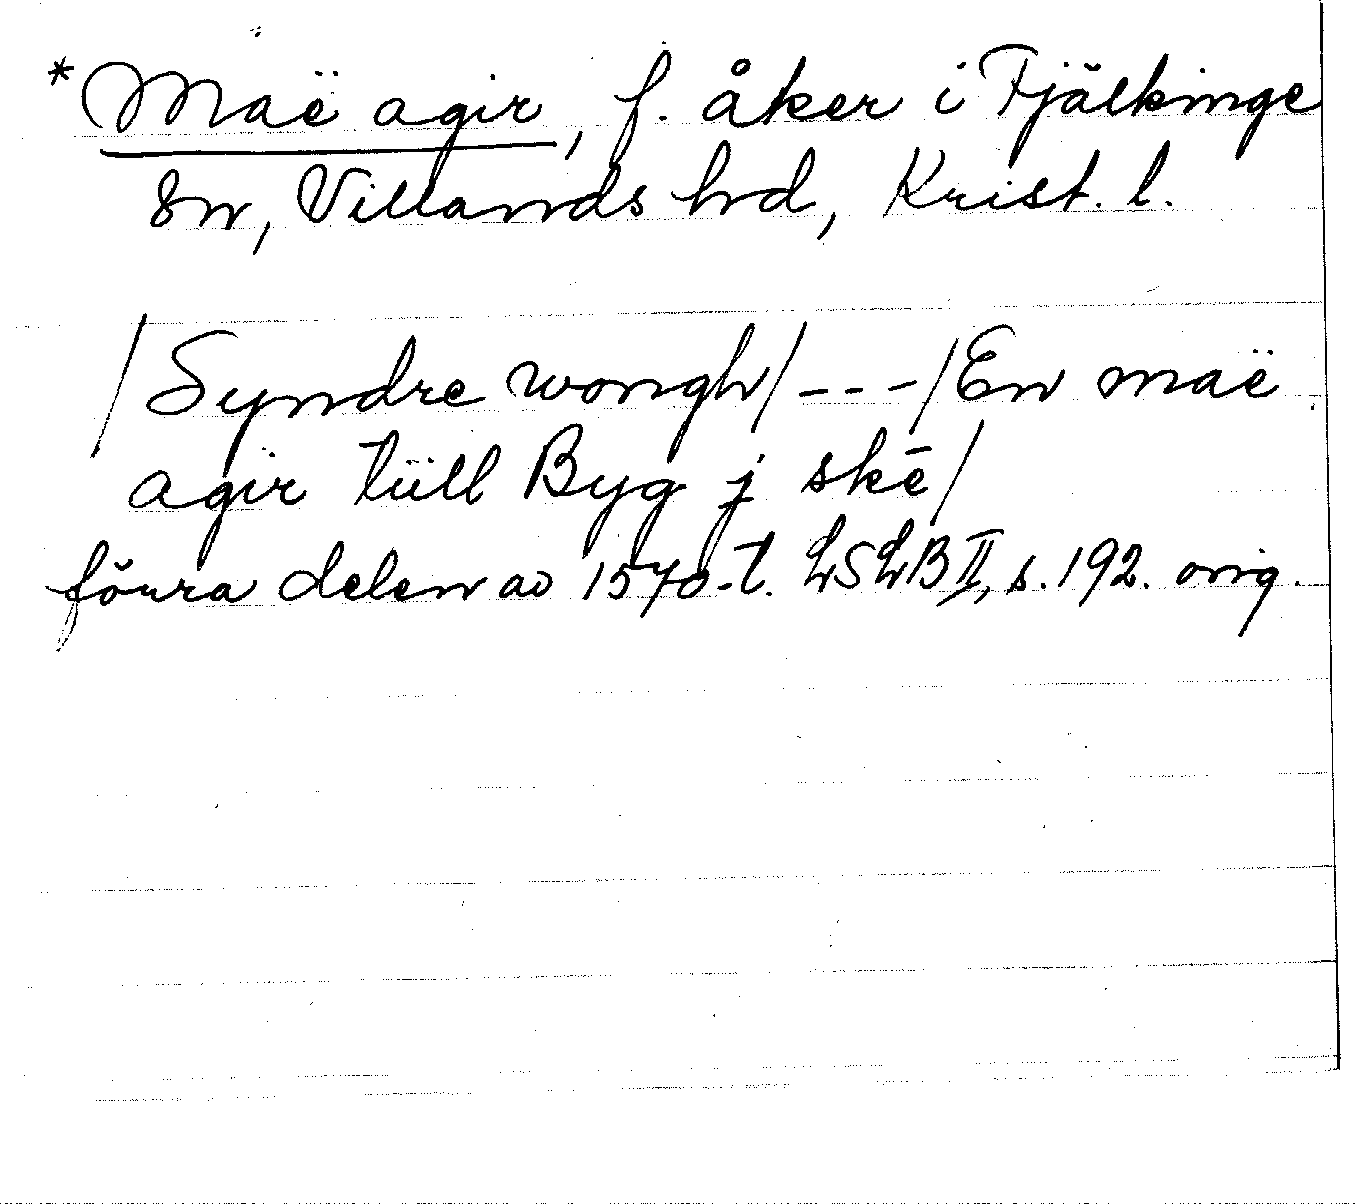 *Maë agir, f. åker i Fjälkinge
sn, Villands hd, Krist. l.
/Syndre wongh/---/En maë
agir tüll Byg j skē/
förra delen av 1570-t. LSLB II, s. 192. orig.